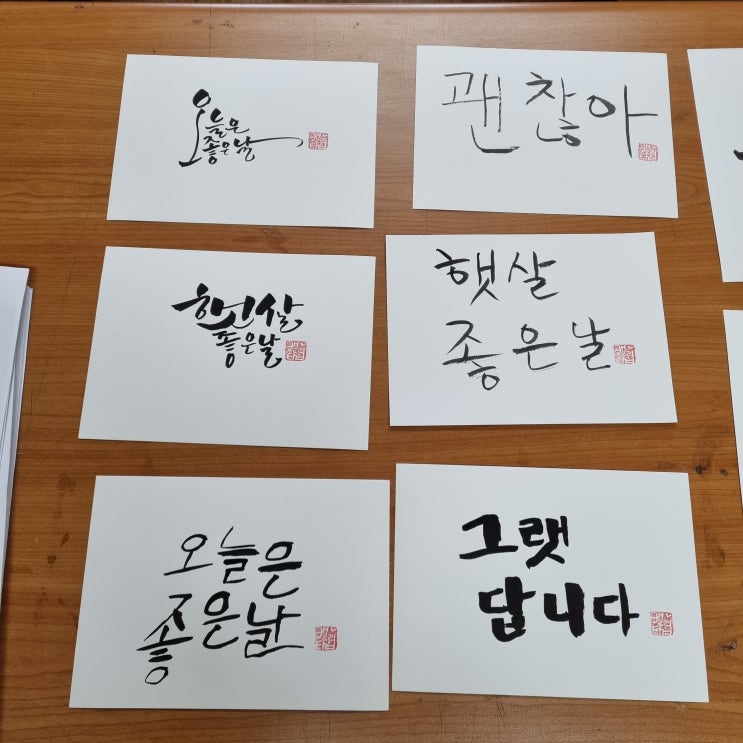 오늘은
좋은날
괜찮아
햇살
좋은날
햇살
좋은날
오늘은
좋은날
그랫
답니다